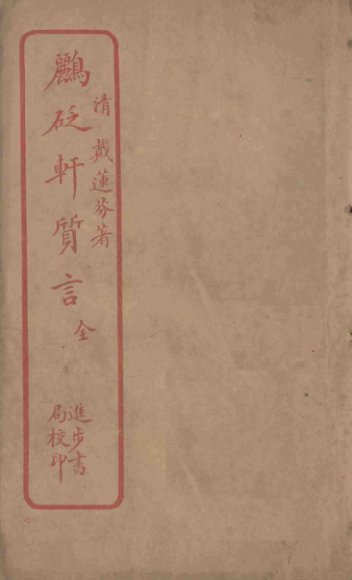 清戴蓮芬著
鸝砭軒質言全
進步書
局校印